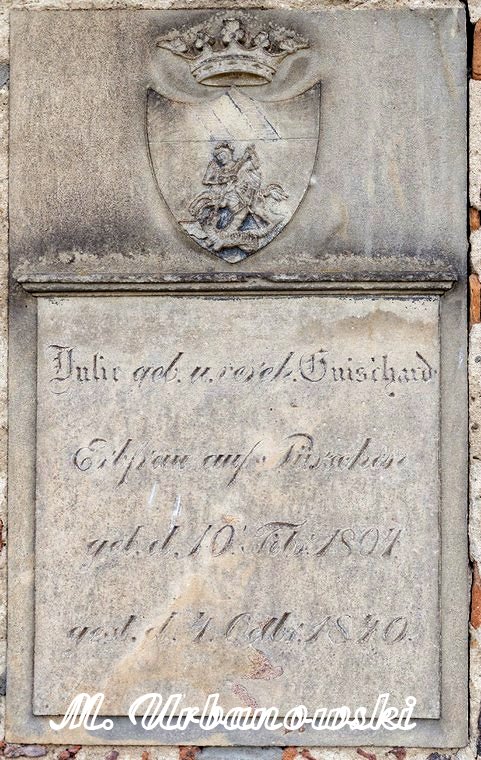 Julie geb. u. vereh. Guischard
Erbfrau auf Pürschen
geb. d. 10. Febr. 1807
gest. d. 4. Octbr. 1840.
M. Urbanowski